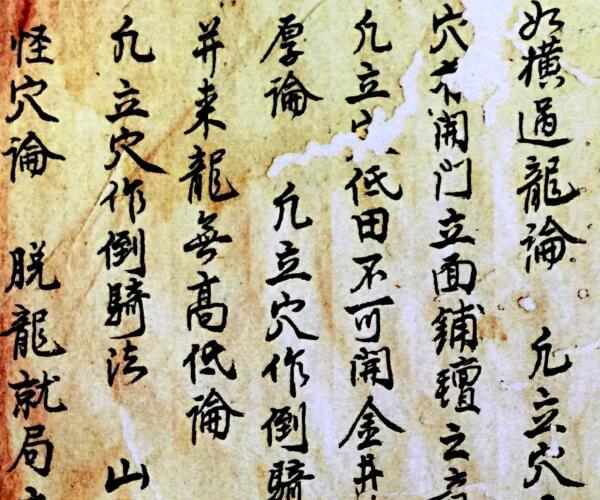 如橫過龍論 凢立穴
穴不開門立面鋪壇之
凢立穴低田不可開金井
厚論 凢立穴作倒騎
并来龍無高低論
凢立穴作倒騎法 山
怪穴論 脱龍就局